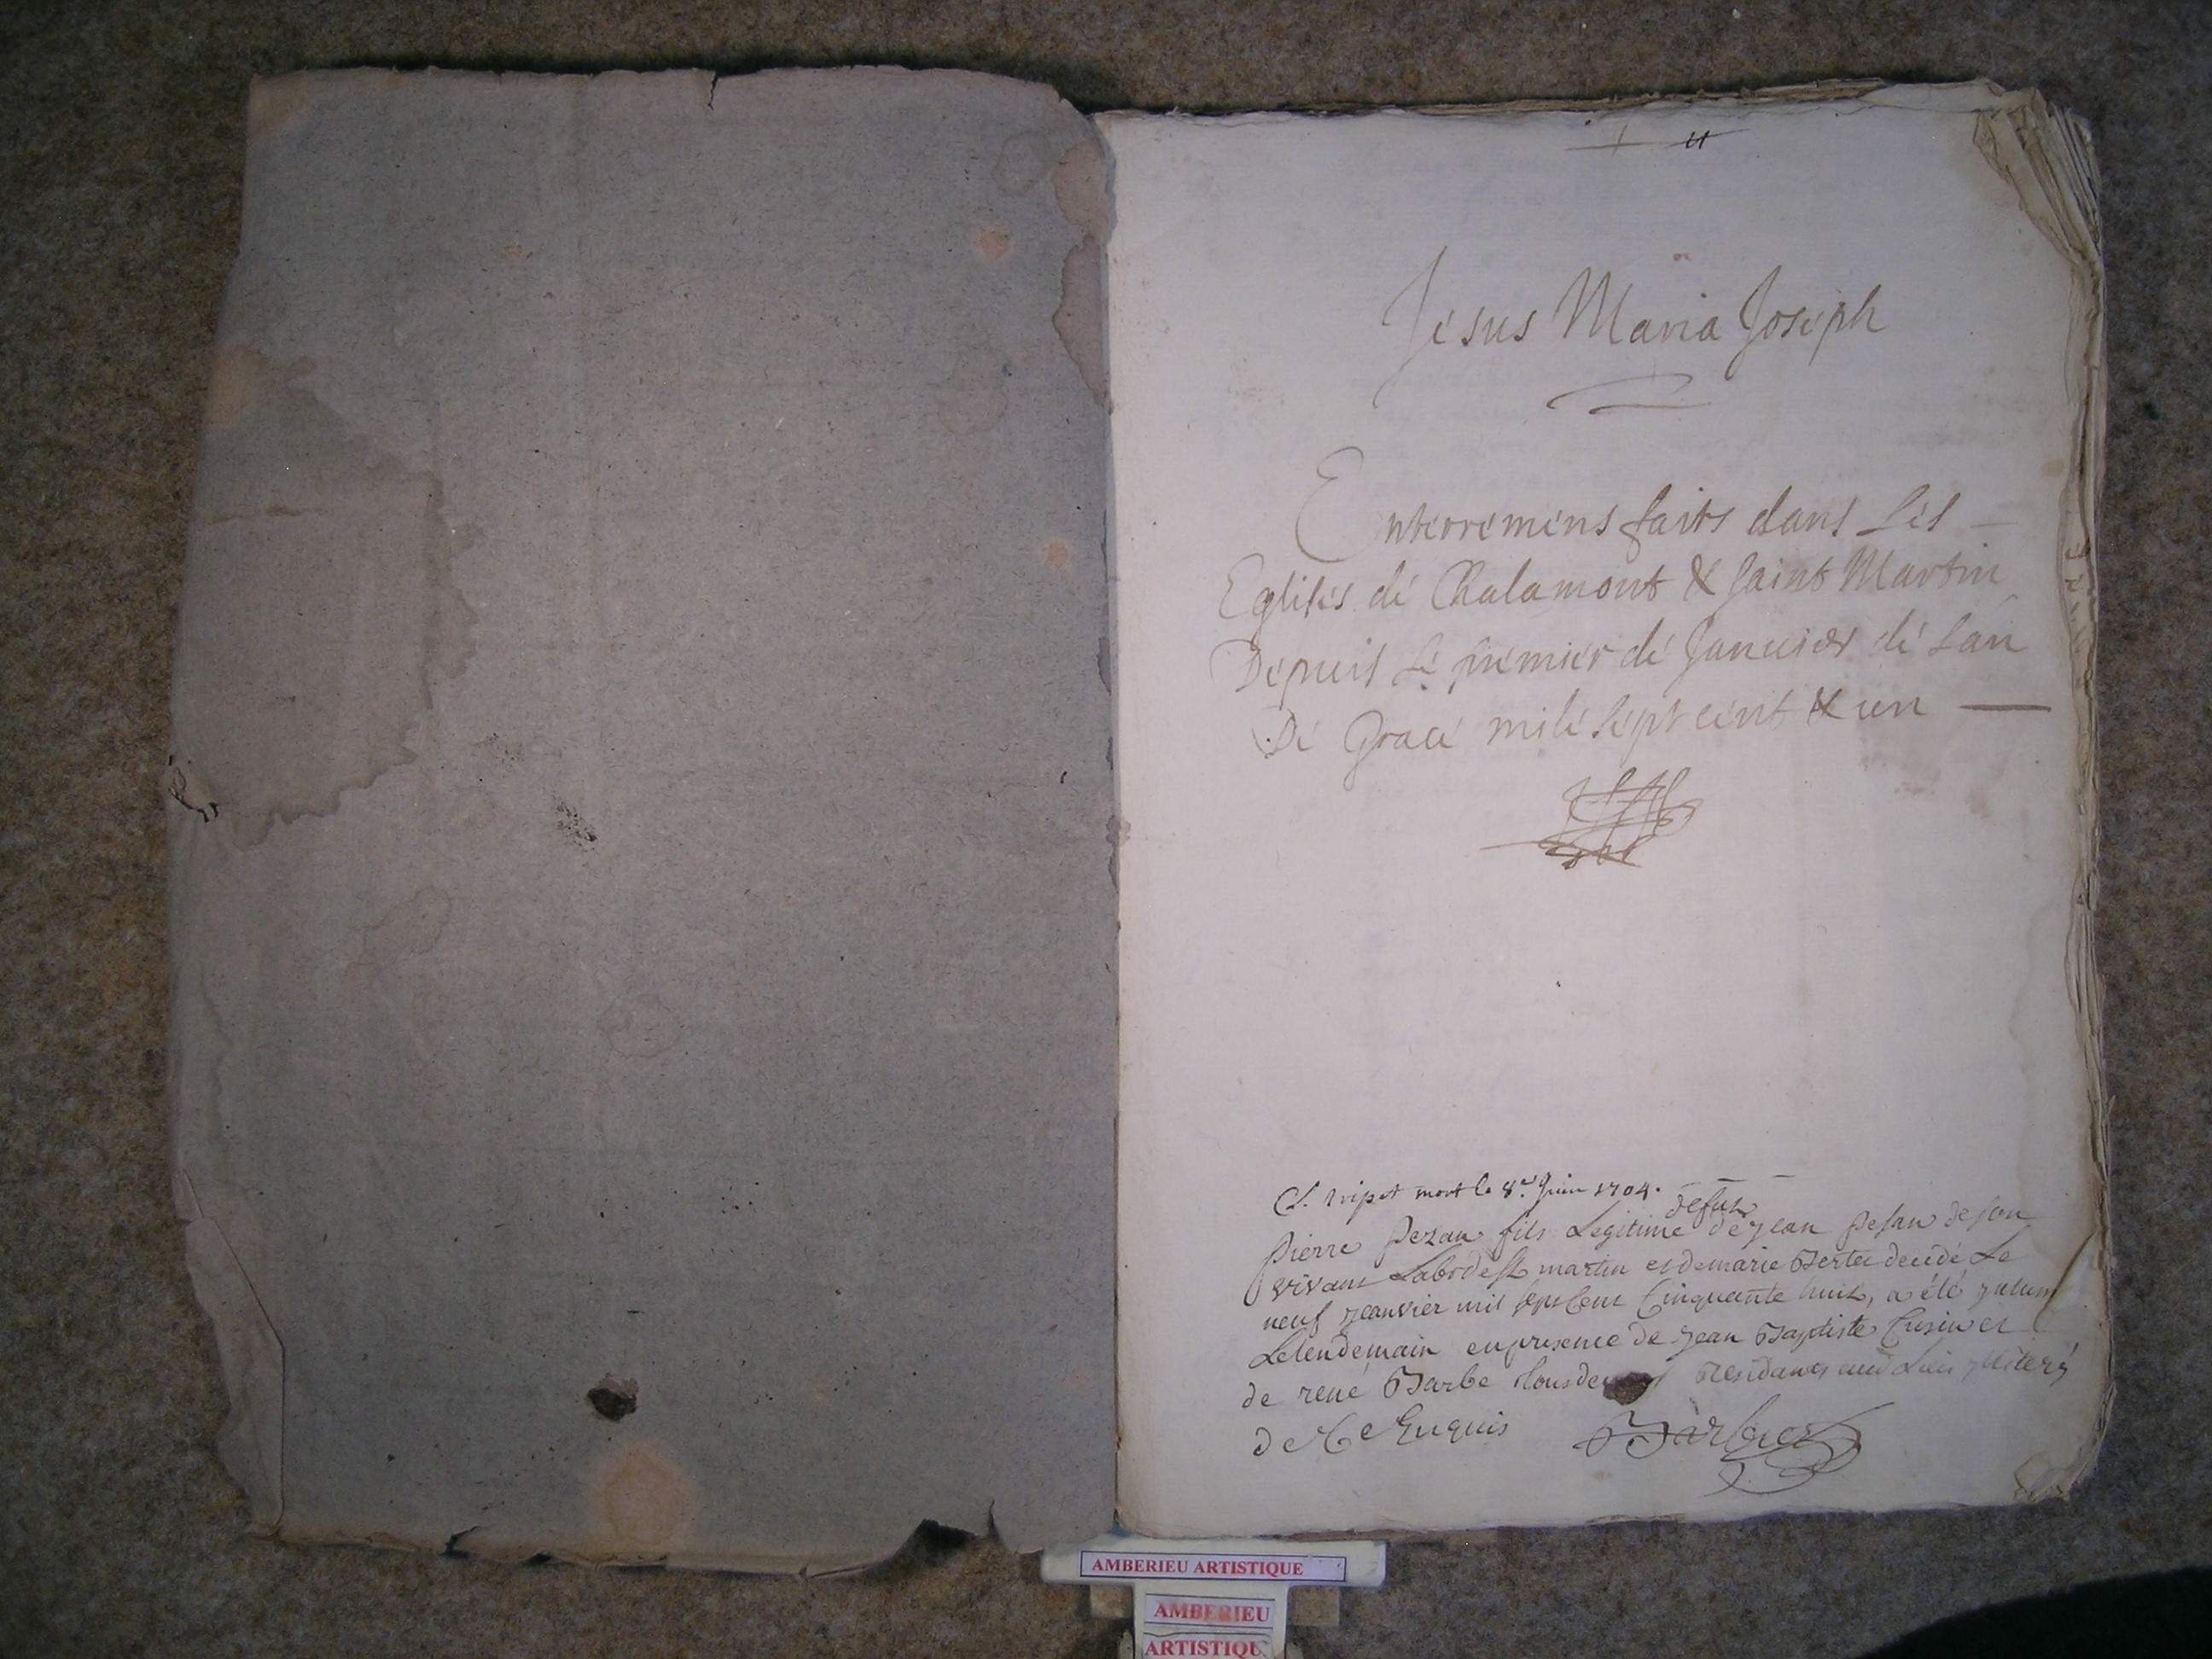 Jesus Maria Joseph
Enterremens faits dans Les
Eglises de Chalamont & saint Martin
Depuis Le premier de Januier de Lan
De Grace mile sept cent & un
Cl. tripet mort le 8e. Juin 1704.
defunt
pierre pezan fils Legitime de jean pesan de son
vivant Labr de st martin et de marie Berter decedé Le
neuf jeanvier mil sept cent Cinquante huit, a été
Le lendemain en presence de jean Baptiste Cusin et
de rené Barbe tous deux residants aud Lieu
de Ce Enquis Barbier
AMBERIEU ARTISTIQUE
AMBERIEU
ARTISTIQU